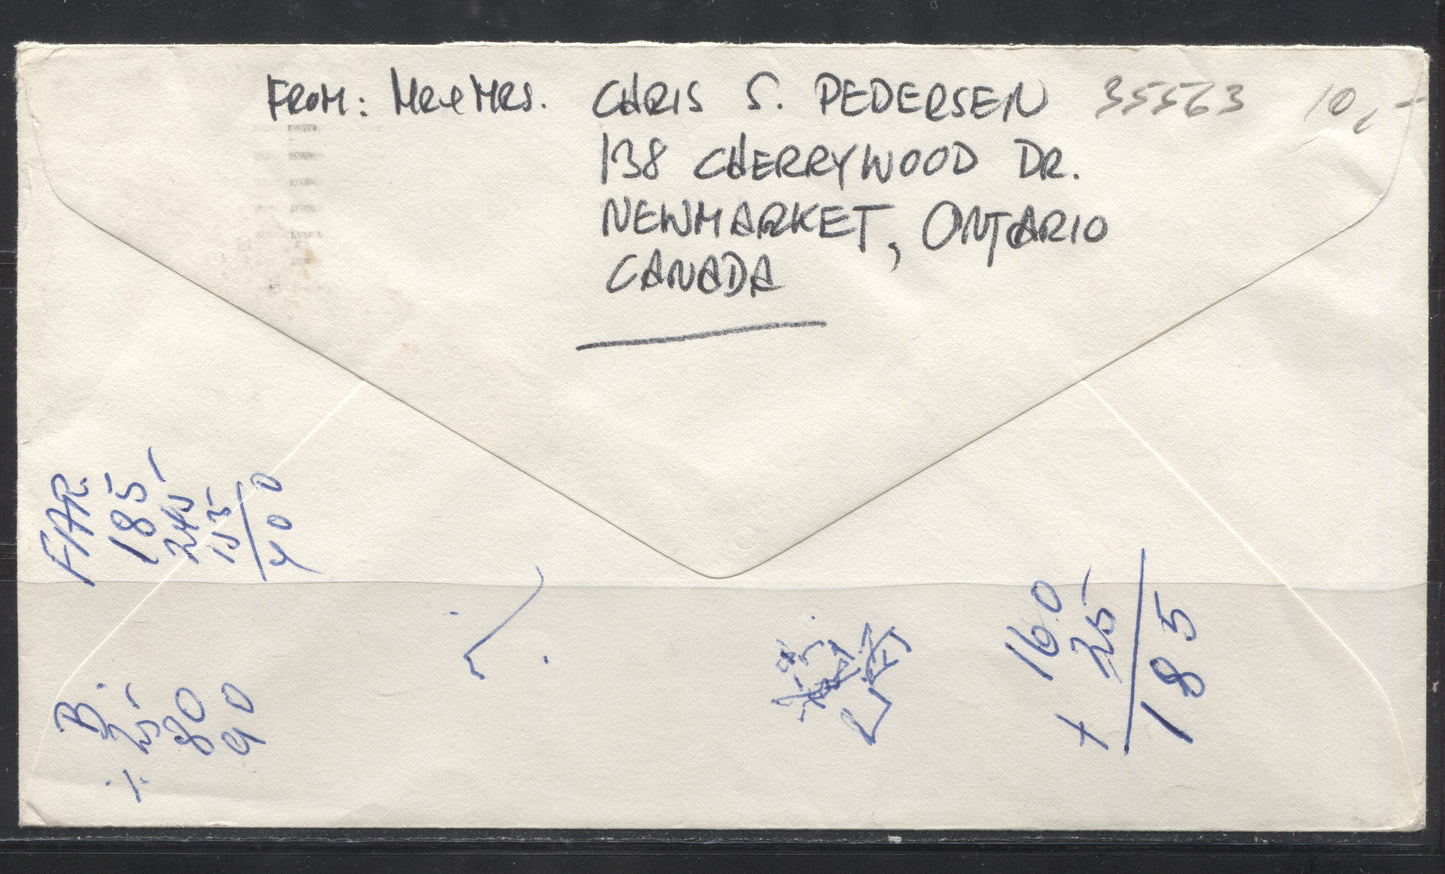 FROM: Mr & Mrs. CHRIS S. PEDERSEN 35563 10,-
138 CHERRYWOOD DR.
NEWMARKET, ONTARIO
CANADA
FAR
185
245
400
B.
25
80
90
160
+ 25
185